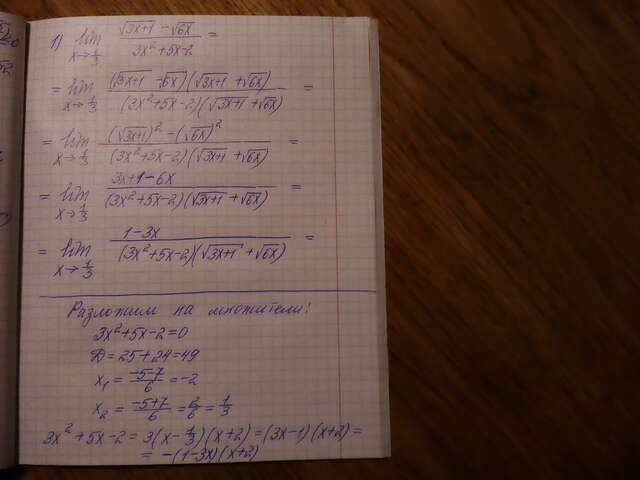 1) lim x→1/3 (√3x+1 − √6x)/(3x²+5x−2) =
= lim x→1/3 (√3x+1 − √6x)(√3x+1 + √6x)/((3x²+5x−2)(√3x+1 + √6x)) =
= lim x→1/3 ((√3x+1)² − (√6x)²)/((3x²+5x−2)(√3x+1 + √6x)) =
= lim x→1/3 (3x+1−6x)/((3x²+5x−2)(√3x+1 + √6x)) =
= lim x→1/3 (1−3x)/((3x²+5x−2)(√3x+1 + √6x)) =
Разложим на множители:
3x²+5x−2=0
D=25+24=49
x₁ = (−5−7)/6 = −2
x₂ = (−5+7)/6 = 2/6 = 1/3
3x²+5x−2 = 3(x−1/3)(x+2) = (3x−1)(x+2) =
= −(1−3x)(x+2)